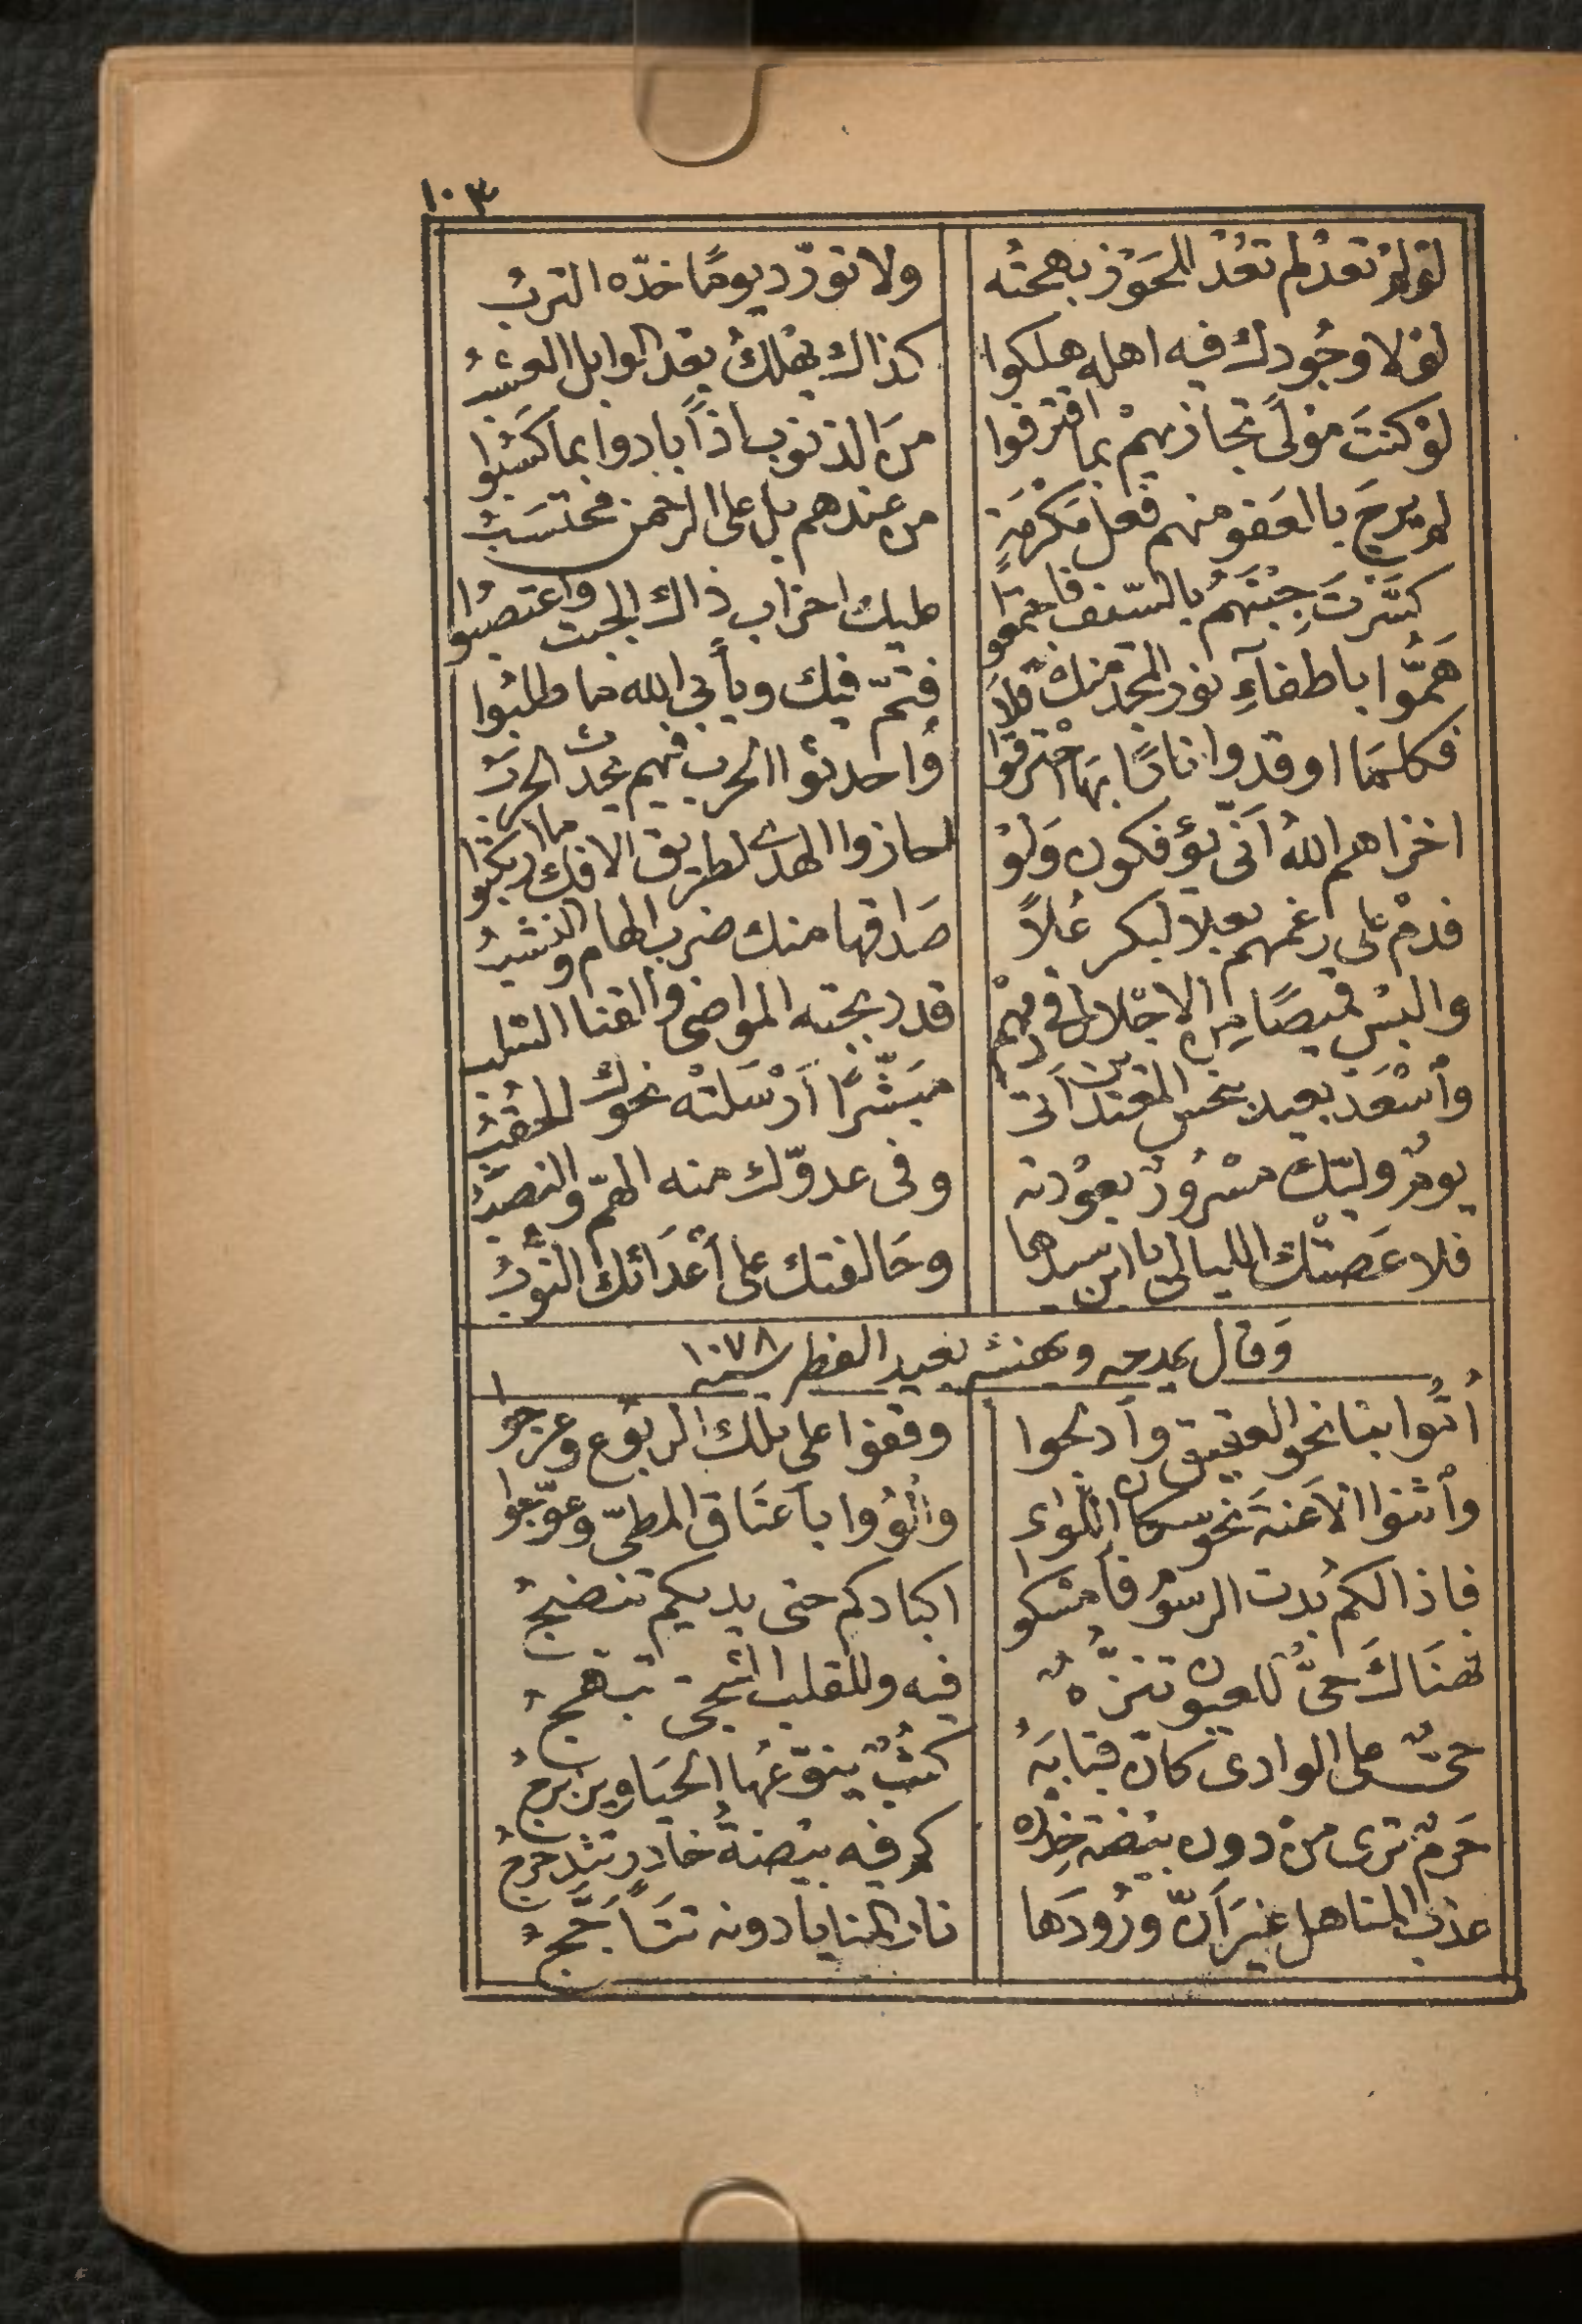 ١٠٣
لوْ لمْ تعدْ لم تعُدْ للحَوْز بهجتُه ولا تورّد يومًا خدّه التربُ
لوْلا وجُودك فيه اهله هلكوا كذاك يهْلكُ بعْد الوابل العشبُ
لوْ كنتَ موْلىً تجازيهمْ بما اقترفوا منَ الذنوب اذاً بادوا بما كسَبُوا
لم يرجَ باالعَفو منهم فعل مَكْرمَةٍ من عندهم بل على الرحمن محتسَبُ
كسَّرْتَ جِبْتَهُم بالسّيْف فاجتمعوا عليك احزاب ذاك الجبت واعتصبُوا
هَمُّوا باطفآءِ نور المجد منك فلا فتمّ فيك ويأبى الله ما طلبُوا
فكلمَا اوقدوا نارًا بهَا احْترقوا واحدثوا الحرب فيهم يحدث الحربُ
اخزاهم اللهُ أنّى يؤفكون وَلوْ لحازوا الهدى لطريق الافك ما ارتكبُوا
فدمْ على رغمهم بعلًا لبكر عُلاً صَداقها منك ضرب الهام والنشبُ
والبسْ قميصًا مِن الاجْلال في دمهمْ قد دبجته المواضى والقنا السلب
وأسْعَدْ بعيد بنحس المعتدين أتى مبَشّرًا أرْسَلتْه نحوك الحقبُ
يومٌ وليّك مسْرُورٌ بعوْدته وفى عدوّك منه الهمّ والنصبُ
فلا عَصتْك الليالى يا ابن سيدها وحَالفتك على أعْدَائك النُّوَبُ
وَقال يمدحه ويهنئه بعيد الفطر سنه ١٠٧٨
أمُّوا بنا نحو العقيق وأدلجوا وقفوا على تلك الربوُع وعرجوا
وأثنوا الاعَنةَ نحو سكان اللواء والْوُوا بأعنَاق المطىّ وعوّجوا
فاذا لكمُ بُدت الرسومُ فأمسْكوا اكبادكم حتى بديكم تنضجُ
فهنَاك حىٌّ للعيون تنزُّهٌ فيه وللقلب الشجى تبهجُ
حىٌّ على الوادى كانّ قبابَهُ كثُبٌ ينوّعُها الحيَا ويزبرجُ
حَرمٌ ترى منْ دون بيْضة خِدره كم فيه بيْضةُ خادرٍ تتدحرجُ
عذبُ المناهل غيرَ أنّ ورُودَها نار المنايا دونه تتَأجَّجُ